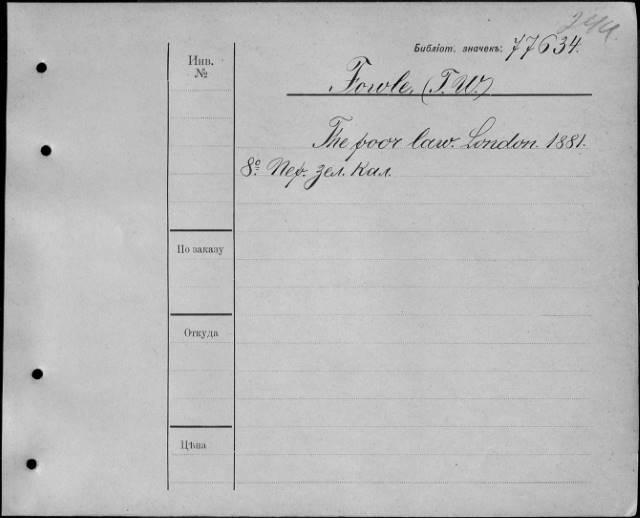 Библіот. значекъ: 77634.
Инв. №
Fowle, (T. W.)
The poor law. London. 1881.
8º. Пер. зел. кал.
По заказу
Откуда
Цѣна